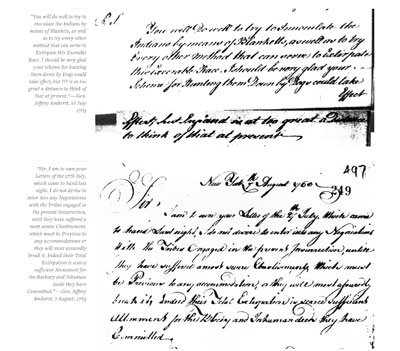 "You will do well to try to
inoculate the Indians by
means of Blankets, as well
as to try every other
method that can serve to
Extirpate this Execrable
Race. I should be very glad
your scheme for hunting
them down by Dogs could
take effect, but ??? is at too
great a distance to think of
that at present."—Gen.
Jeffery Amherst, 16 July
1763
P.S.
You will Do well to try to Innoculate the
Indians by means of Blanketts, as well as to try
Every other Method that can serve to Extirpate
this Execrable Race. I should be very glad your
Scheme for Hunting them Down by Dogs could take
Effect
Effect, but England is at too great a Distance
to think of that at present
"Sir, I am to own your
Letters of the 27th July,
which came to hand last
night. I do not desire to
enter into any Negotiations
with the Tribes engaged in
the present Insurrection,
until they have suffered a
most severe Chastisement,
which must be Previous to
any accommodations or
they will most assuredly
break it. Indeed their Total
Extirpation is scarce
sufficient Atonement for
the Barbary and Inhuman
deeds they have
Committed."—Gen. Jeffery
Amherst, 7 August, 1763
497
349
New York 7th August 1763
Sir,
I am to own your Letter of the 27th July, which came
to hand last night, I do not desire to enter into any Negociations
with the Tribes Engaged in the present Insurrection, untill
they have suffered a most severe Chastisement, which must
be Previous to any accommodations, or they will most assuredly
break it; Indeed their Total Extirpation is scarce sufficient
Attonement for the Bloody and Inhuman deeds they have
Committed.